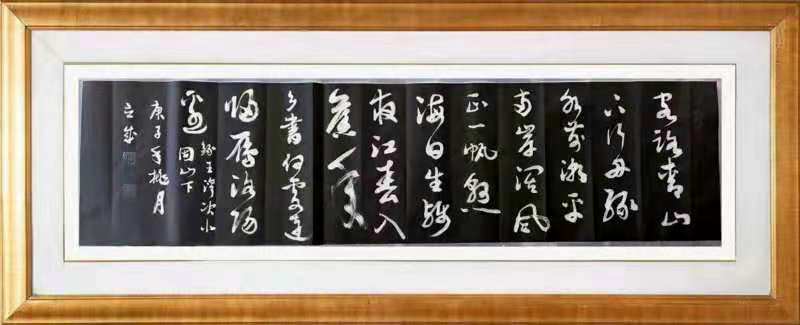 客路青山
下行舟緑
水前潮平
兩岸闊風
正一帆懸
海日生殘
夜江春入
舊年
乡書何處達
歸雁洛陽
邊
錄王灣次北
固山下
庚子年桃月